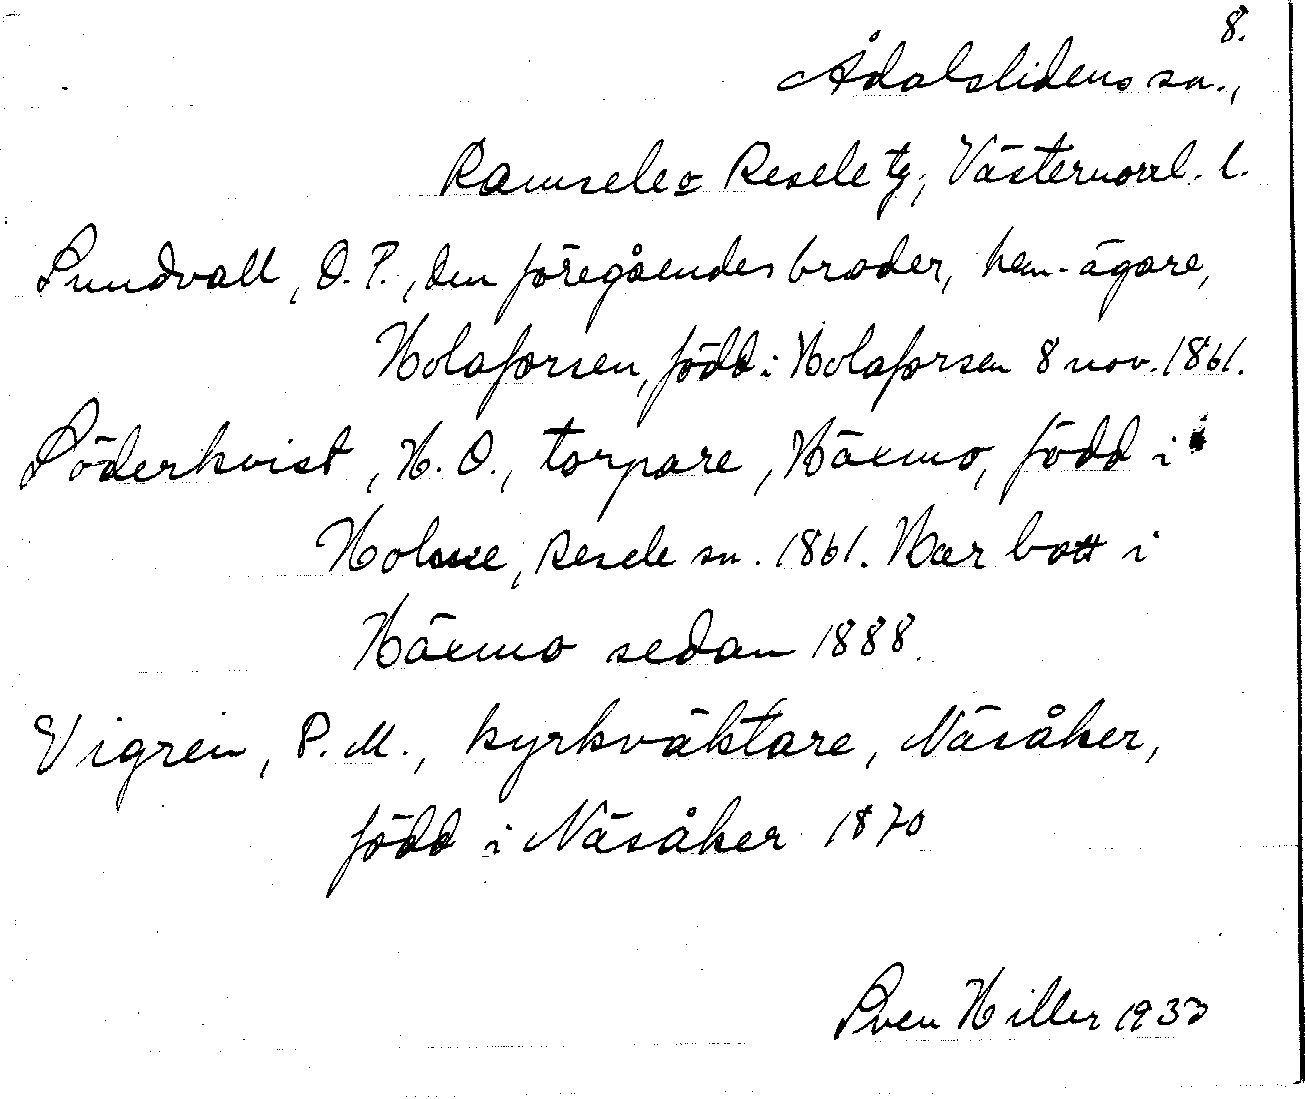 8.
Ådalslidens sn.,
Ramsele o Resele tg, Västernorrl. l.
Sundvall, O. P., den föregåendes broder, hem-ägare,
Holaforsen, född i Holaforsen 8 nov. 1861.
Söderkvist, H. O., torpare, Häxmo, född i
Holme, Resele sn. 1861. Har bott i
Häxmo sedan 1888.
Vigren, P. M., kyrkväktare, Näsåker,
född i Näsåker 1870
Sven Hiller